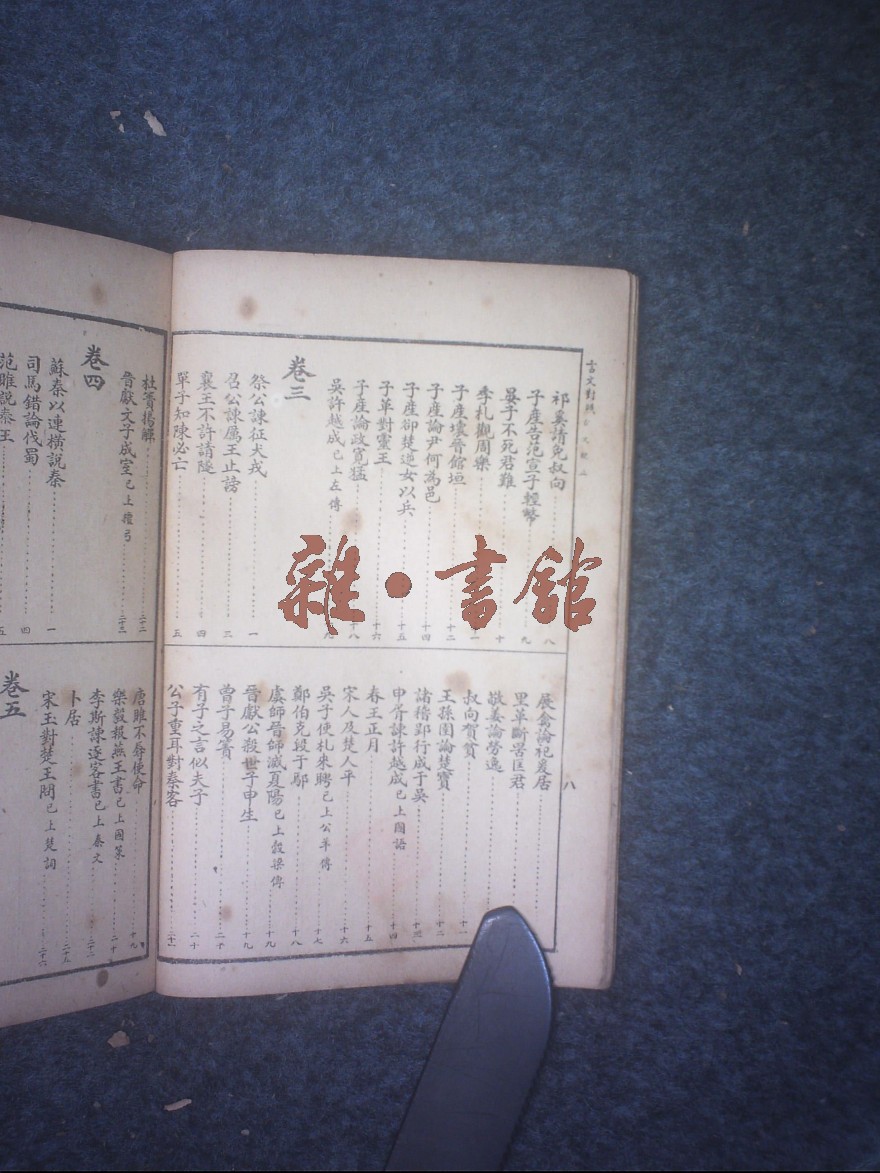 言文對照 古文觀止
祁奚請免叔向 八
子產告范宣子輕幣 九
晏子不死君難 十
季札觀周樂
子產壞晉館垣 十二
子產論尹何為邑 十四
子產卻楚逆女以兵 十五
子革對靈王 十六
子產論政寬猛 十八
吳許越成 已上左傳
卷三
祭公諫征犬戎 一
召公諫厲王止謗 三
襄王不許請隧 四
單子知陳必亡 五
八
展禽論祀爰居
里革斷罟匡君
敬姜論勞逸
叔向賀貧 十一
王孫圉論楚寶 十二
諸稽郢行成于吳 十三
申胥諫許越成 已上國語 十四
春王正月 十五
宋人及楚人平 十六
吳子使札來聘 已上公羊傳 十七
鄭伯克段于鄢 十八
虞師晉師滅夏陽 已上穀梁傳 十九
晉獻公殺世子申生 十九
曾子易簀 二十
有子之言似夫子 二十
公子重耳對秦客 二十一
杜蕢揚觶 二十二
晉獻文子成室 已上檀弓 二十三
卷四
蘇秦以連橫說秦 一
司馬錯論伐蜀 四
范雎說秦王 五
唐雎不辱使命 十九
樂毅報燕王書 已上國策 二十
李斯諫逐客書 已上秦文 二十三
卜居 二十五
宋玉對楚王問 已上楚詞 二十六
卷五
雜·書館